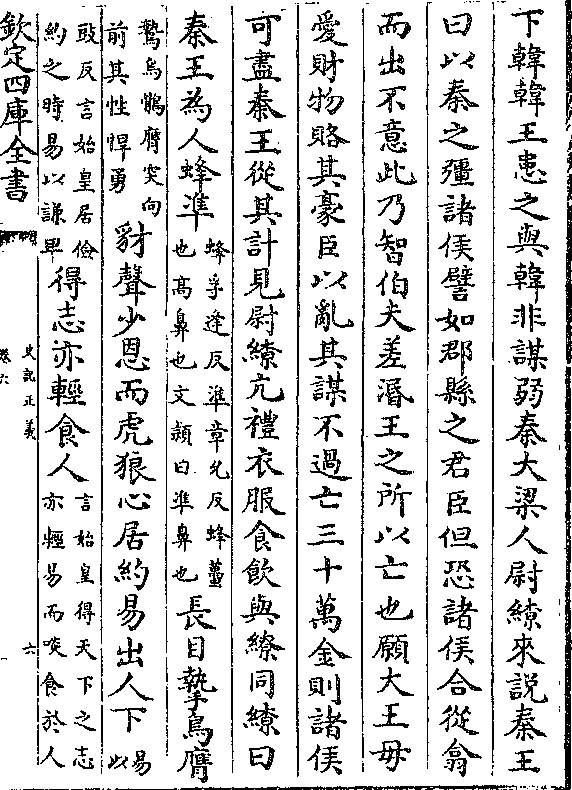 下韓韓王患之與韓非謀弱秦大梁人尉繚來說秦王
曰以秦之彊諸侯譬如郡縣之君臣但恐諸侯合從翕
而出不意此乃智伯夫差湣王之所以亡也願大王毋
愛財物賂其豪臣以亂其謀不過亡三十萬金則諸侯
可盡秦王從其計見尉繚亢禮衣服食飲與繚同繚曰
秦王為人蜂準蜂孚逢反準章允反蜂蠆也高鼻也文潁曰準鼻也長目摯鳥膺
鷙鳥鶻膺突向前其性悍勇豺聲少恩而虎狼心居約易出人下易以
豉反言始皇居儉約之時易以謙卑得志亦輕食人言始皇得天下之志亦輕易而啖食於人
欽定四庫全書
史記正義
卷六
六